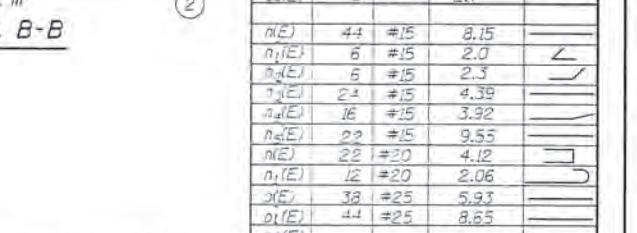 B-B
2
n(E) 44 #15 8.15
n₁(E) 6 #15 2.0
n₂(E) 6 #15 2.3
n₃(E) 24 #15 4.39
n₄(E) 16 #15 3.92
n₅(E) 22 #15 9.55
n(E) 22 #20 4.12
n₁(E) 12 #20 2.06
o(E) 38 #25 5.93
o₁(E) 44 #25 8.65